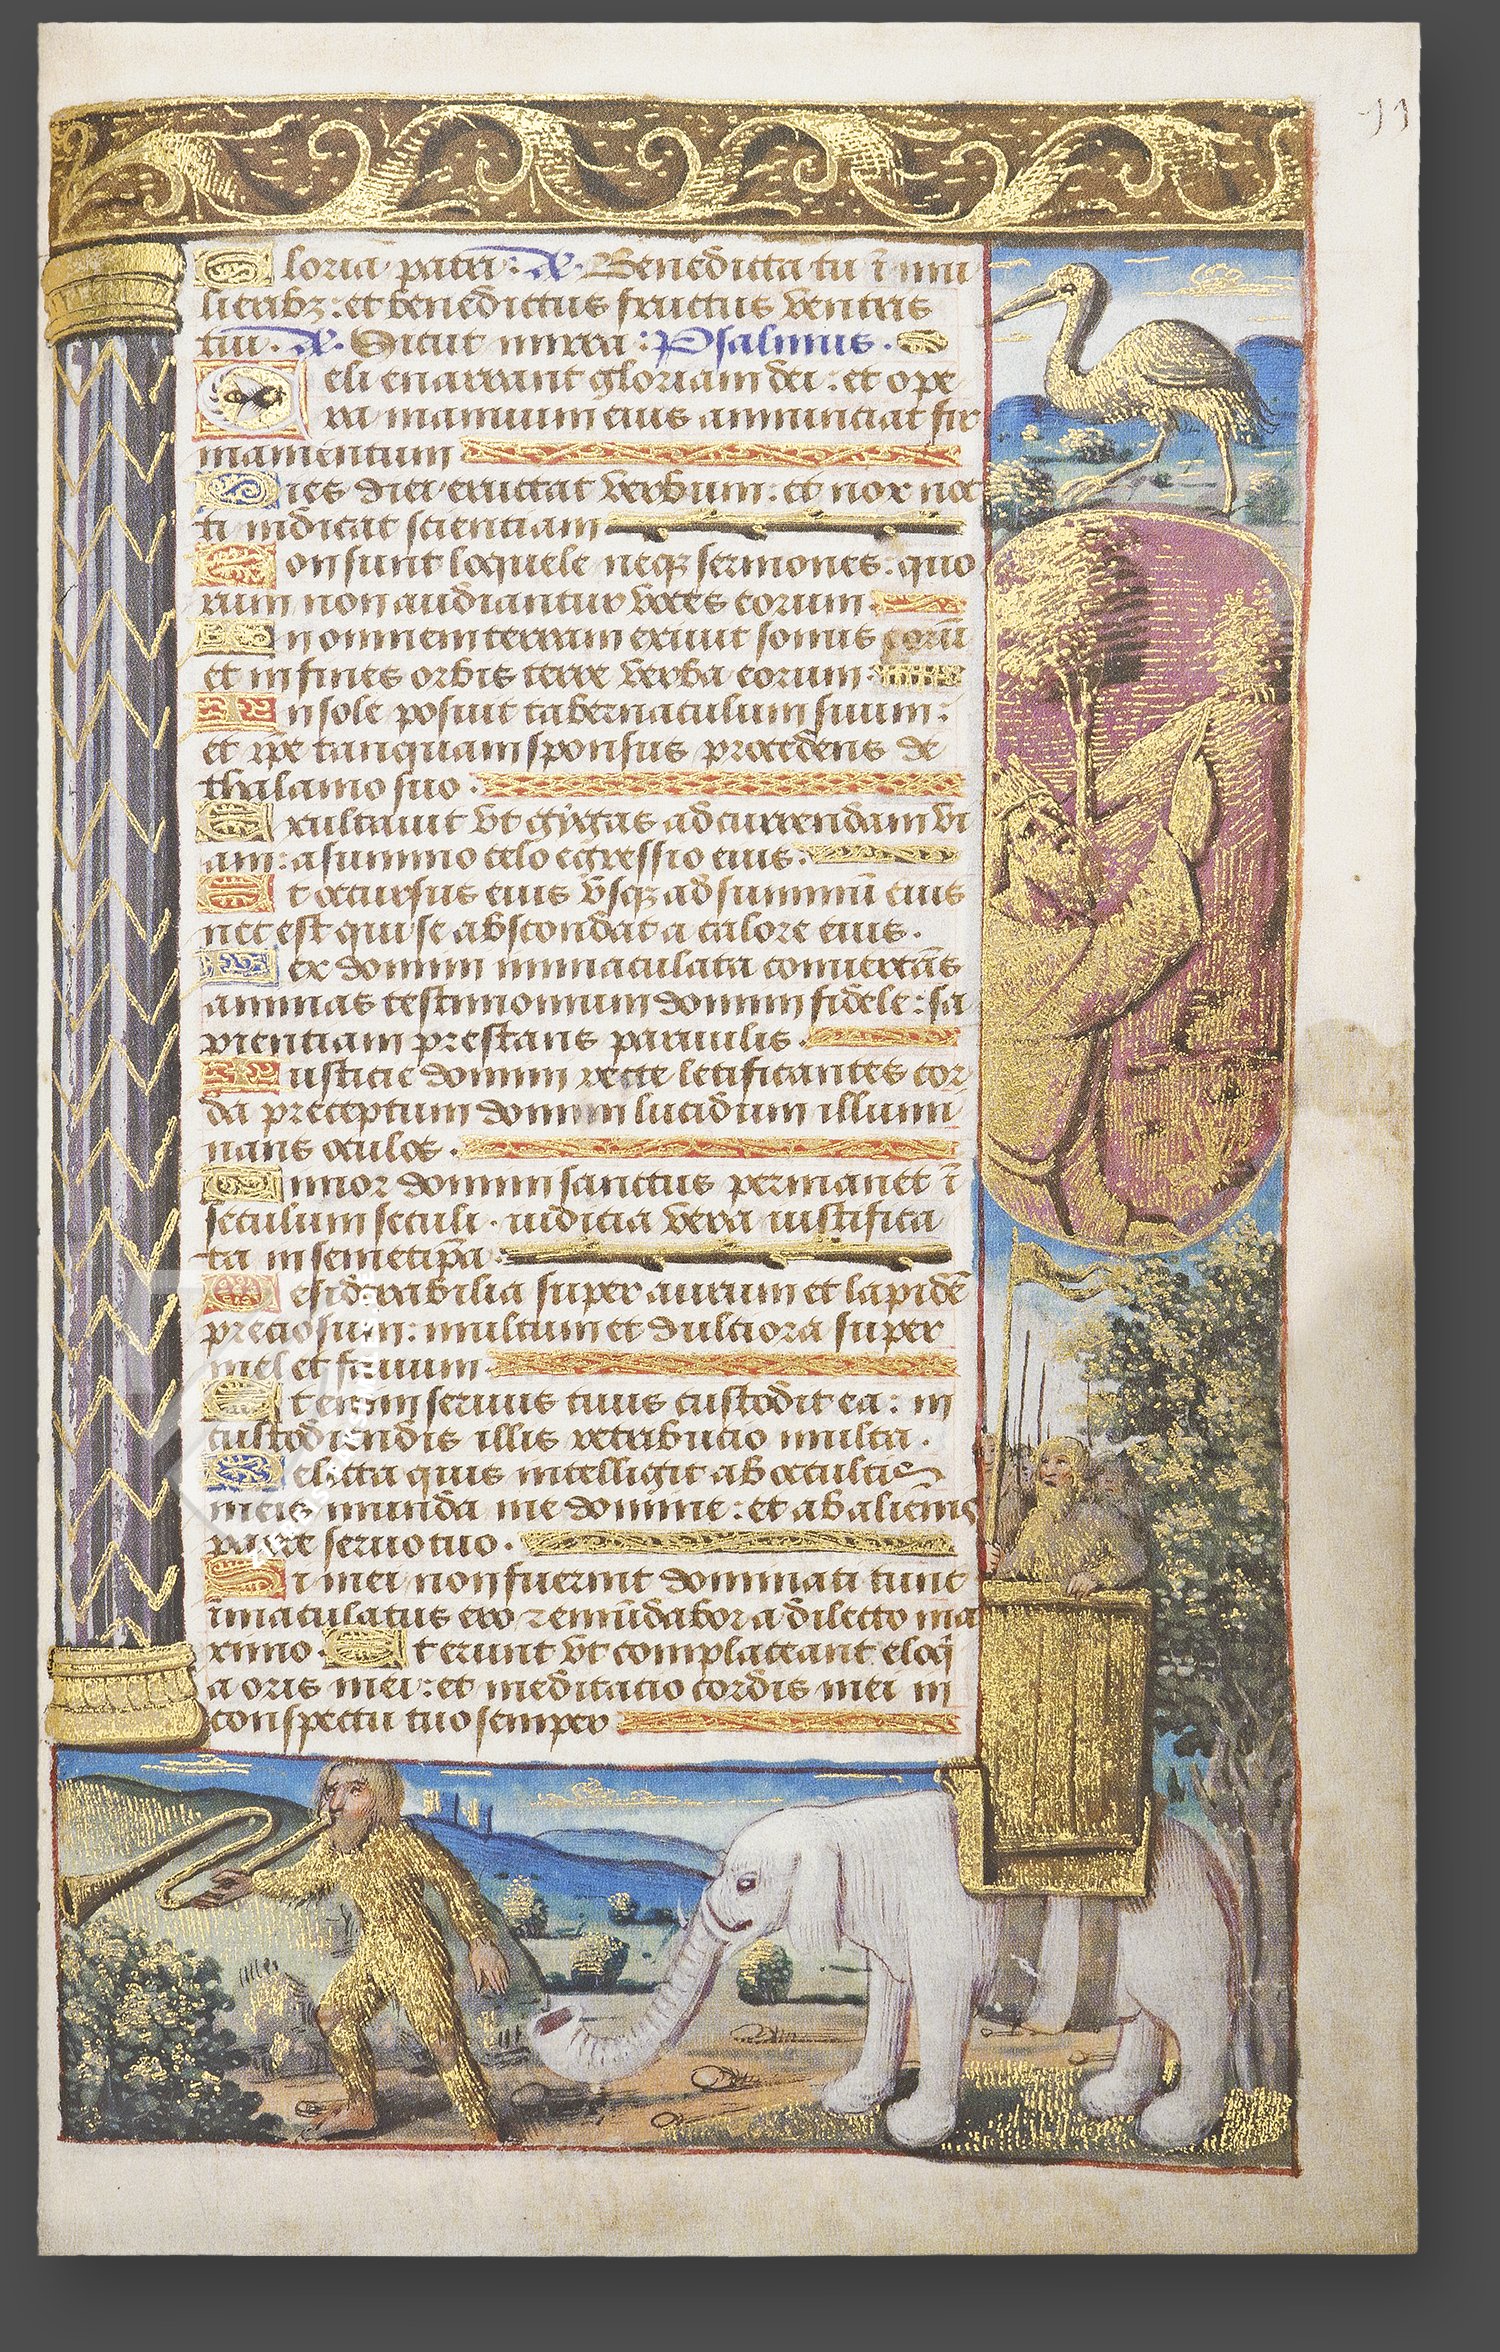 11
Gloria patri: A. Benedicta tu ī mu
lieribz: et benedictus fructus ventris
tui. A. Sicut mirra: Psalmus.
Celi enarrant gloriam dei: et ope
ra manuum eius annunciat fir
mamentum
Dies diei eructat verbum: et nox noc
ti indicat scientiam
Non sunt loquele neqz sermones: quo
rum non audiantur voces eorum
In omnem terram exivit sonus eorū
et in fines orbis terre verba eorum
In sole posuit tabernaculum suum:
et ip̄e tanquam sponsus procedens de
thalamo suo.
Exultavit vt gygas ad currendam vi
am: a summo celo egressio eius.
Et occursus eius vsqz ad summū eius
nec est qui se abscondat a calore eius.
Lex domini immaculata convertēs
animas testimonium domini fidele: sa
pientiam prestans parvulis.
Iusticie domini recte letificantes cor
da preceptum domini lucidum illumi
nans oculos.
Timor domini sanctus permanet ī
seculum seculi. iudicia vera iustifica
ta in semetip̄a.
Desiderabilia super aurum et lapidē
preciosum: multum et dulciora super
mel et favum.
Et enim servus tuus custodit ea: in
custodiendis illis retributio multa.
Delicta quis intelligit ab occultis
meis munda me domine: et ab alienis
parce servo tuo.
Si mei non fuerint dominati tunc
īmaculatus ero z emūdabor a delicto ma
ximo. Et erunt vt complaceant eloq̄
a oris mei: et meditatio cordis mei in
conspectu tuo semper